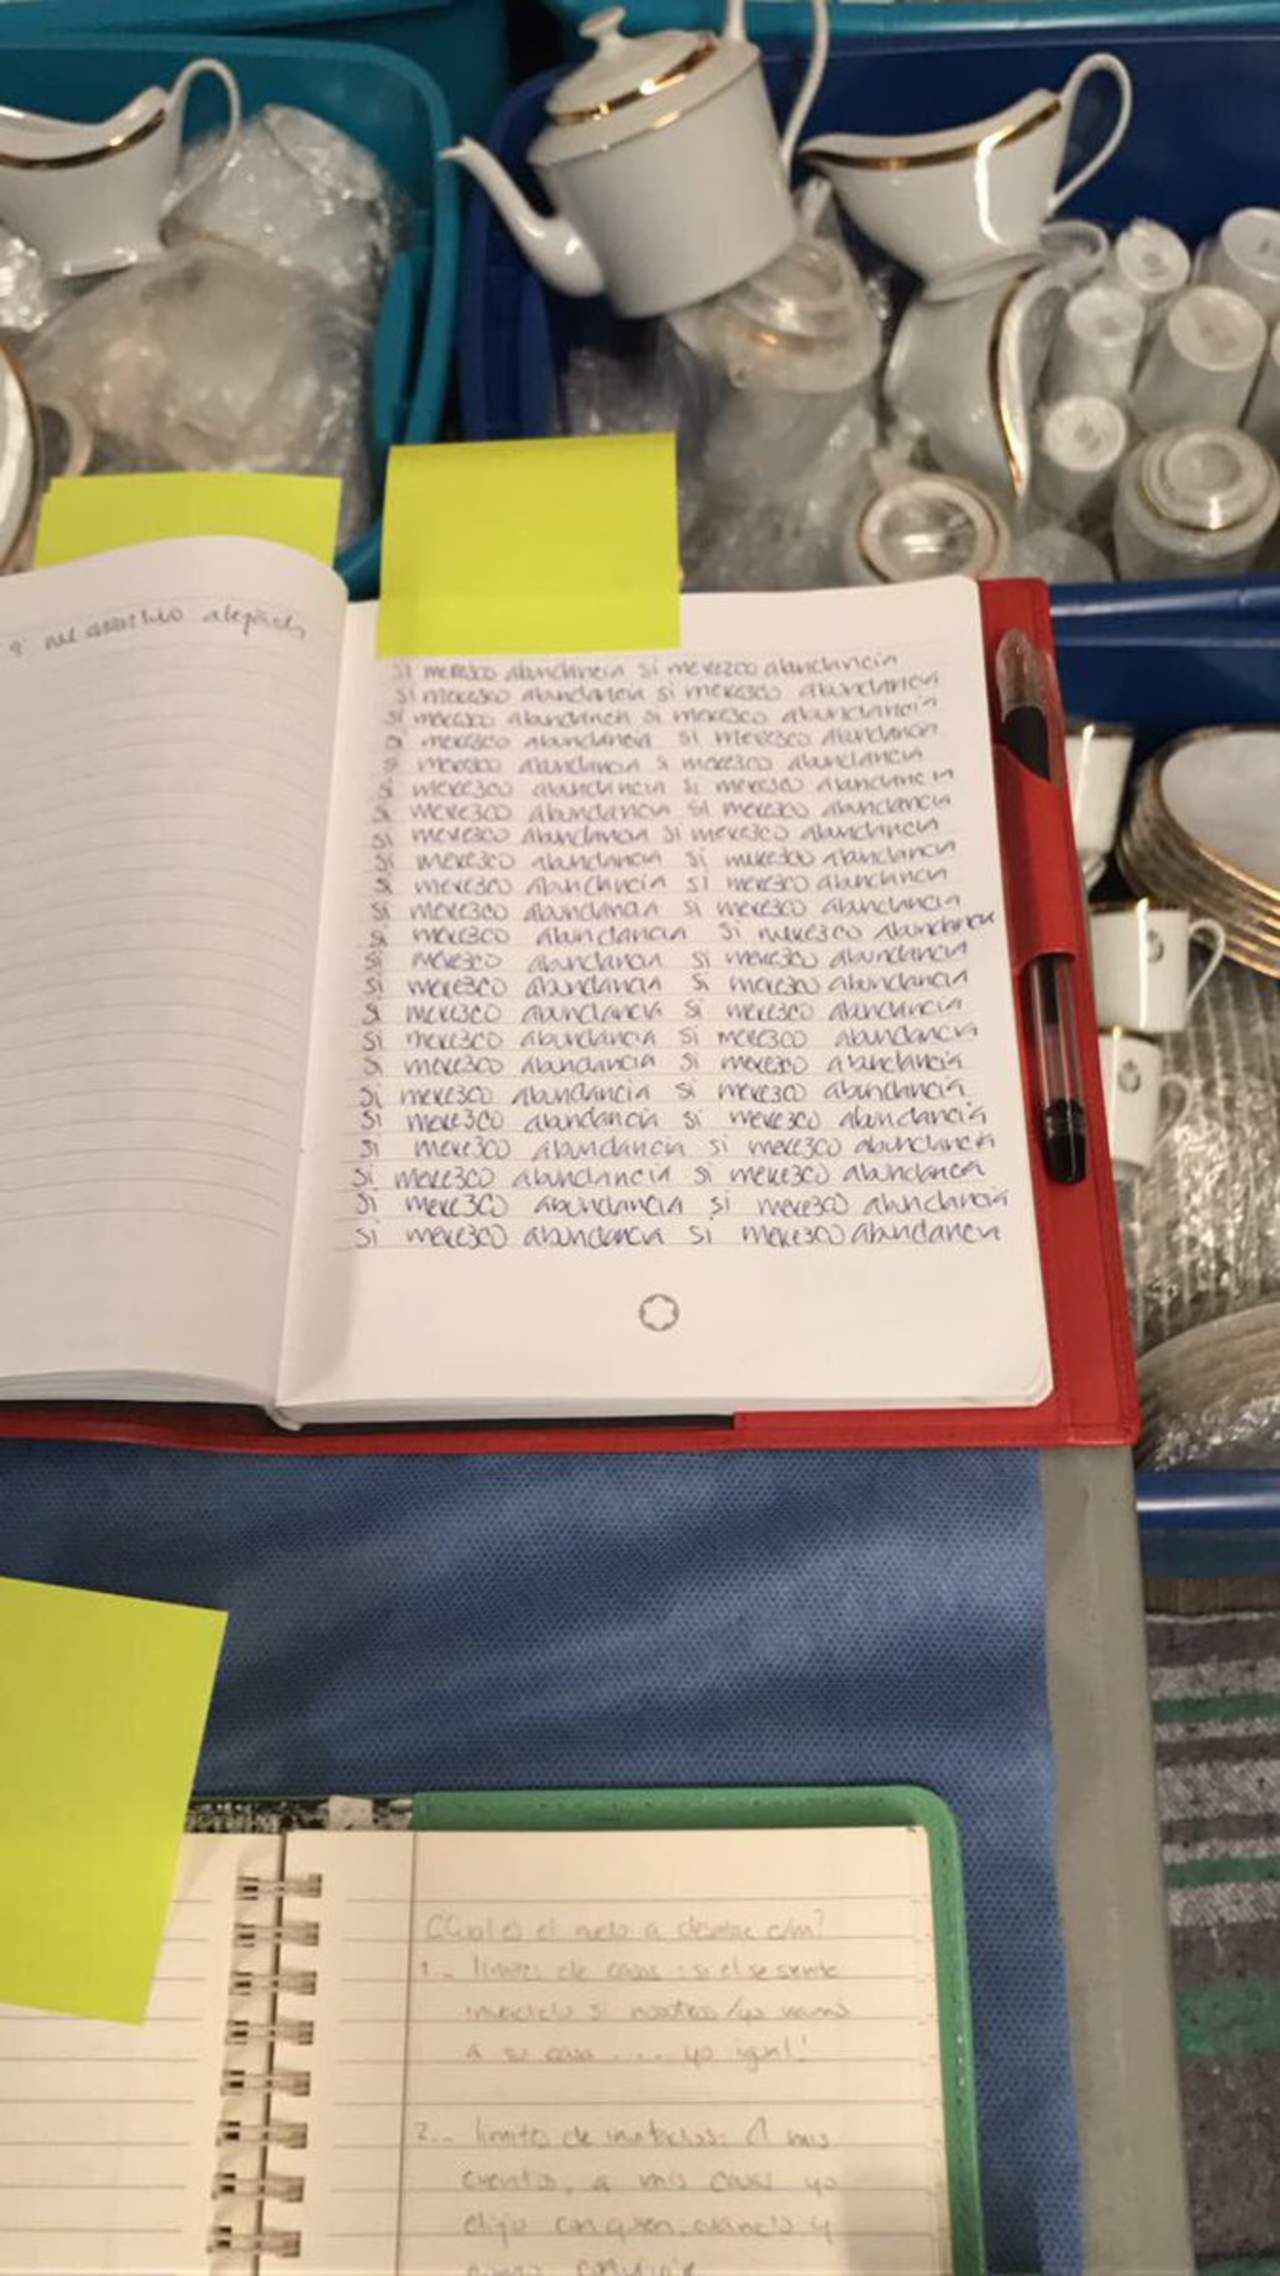 me asombro alejada
si merezco abundancia si merezco abundancia
si merezco abundancia si merezco abundancia
si merezco abundancia si merezco abundancia
si merezco abundancia si merezco abundancia
si merezco abundancia si merezco abundancia
si merezco abundancia si merezco abundancia
si merezco abundancia si merezco abundancia
si merezco abundancia si merezco abundancia
si merezco abundancia si merezco abundancia
si merezco abundancia si merezco abundancia
si merezco abundancia si merezco abundancia
si merezco abundancia si merezco abundancia
si merezco abundancia si merezco abundancia
si merezco abundancia si merezco abundancia
si merezco abundancia si merezco abundancia
si merezco abundancia si merezco abundancia
si merezco abundancia si merezco abundancia
si merezco abundancia si merezco abundancia
si merezco abundancia si merezco abundancia
si merezco abundancia si merezco abundancia
si merezco abundancia si merezco abundancia
si merezco abundancia si merezco abundancia
si merezco abundancia si merezco abundancia
¿Cual es el a c/m?
1.- limites de casas si el se siente
si nosotros/yo vamos
a su casa .... yo igual!
2.- limites de invitados: A mis
eventos, a mis casas yo
elijo con quien, cuando y
como convivir